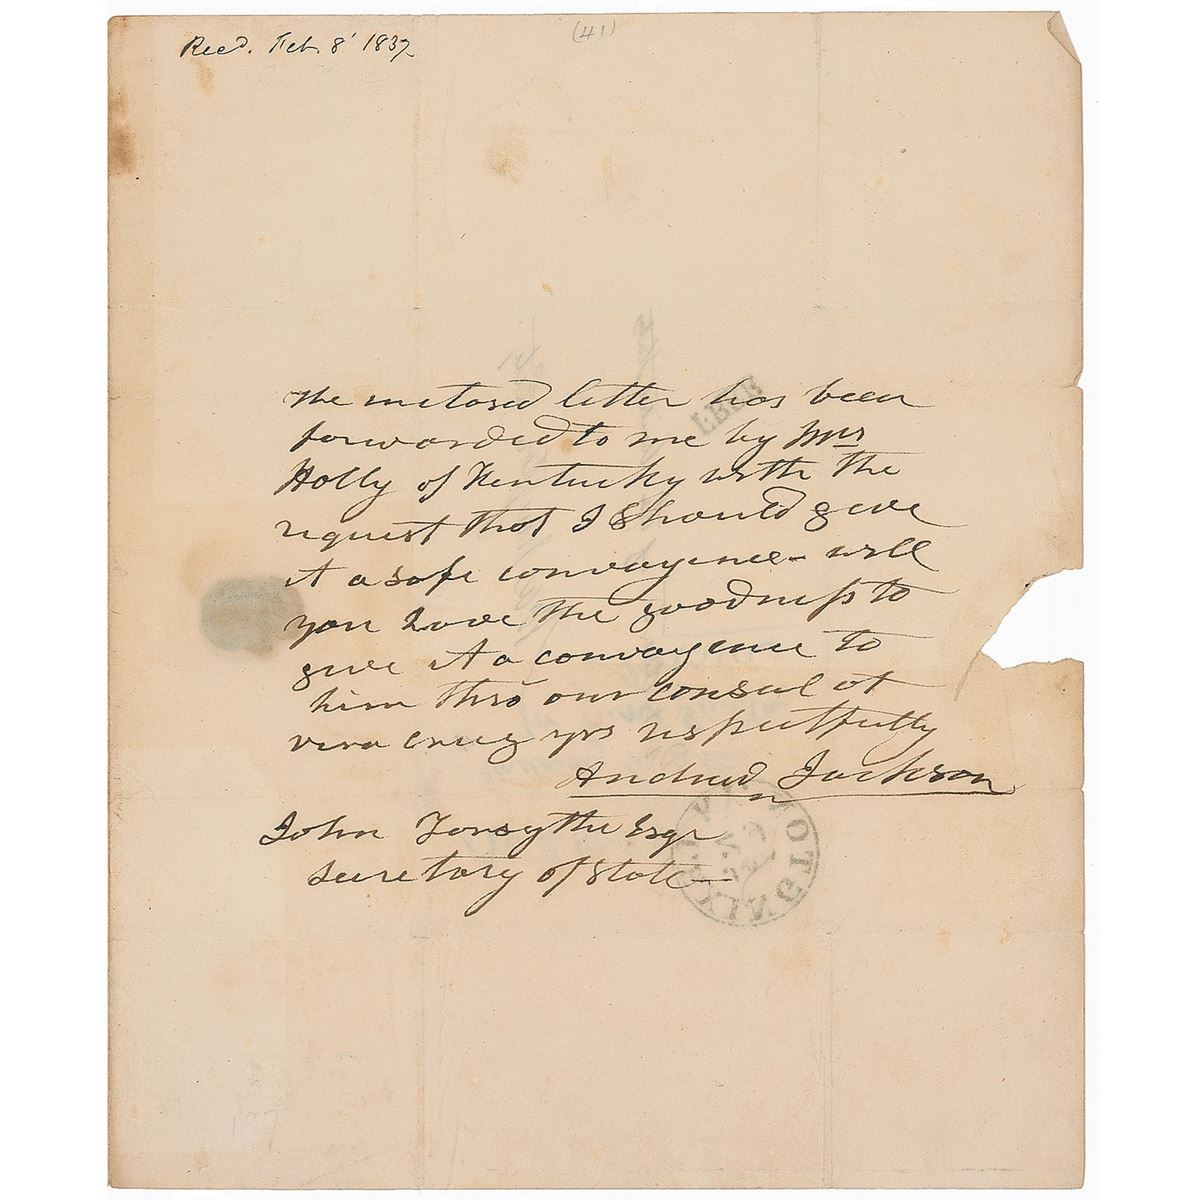 Recd. Feb 8' 1837
(41)
The inclosed letter has been
forwarded to me by Mrs
Holly of Kentucky with the
request that I should give
it a safe convayence - will
you have the goodness to
give it a convayence to
him thro our consul at
vera cruz yrs respectfully
Andrew Jackson
John Forsythe Esqr
Secretary of State
FREE
WASHINGTON